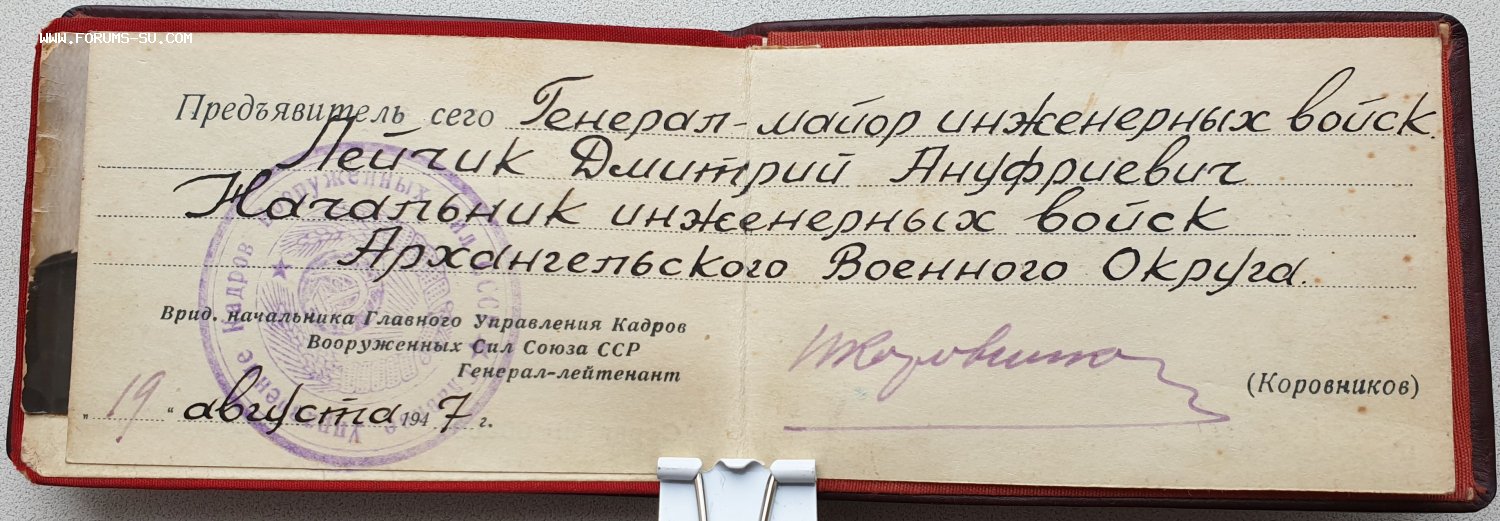 WWW.FORUMS-SU.COM
Предъявитель сего Генерал-майор инженерных войск.
Пейчик Дмитрий Ануфриевич
Начальник инженерных войск
Архангельского Военного Округа.
Врид. начальника Главного Управления Кадров
Вооруженных Сил Союза ССР
Генерал-лейтенант
(Коровников)
„19“ августа 1947 г.
Управление Кадров Вооруженных Сил ССР